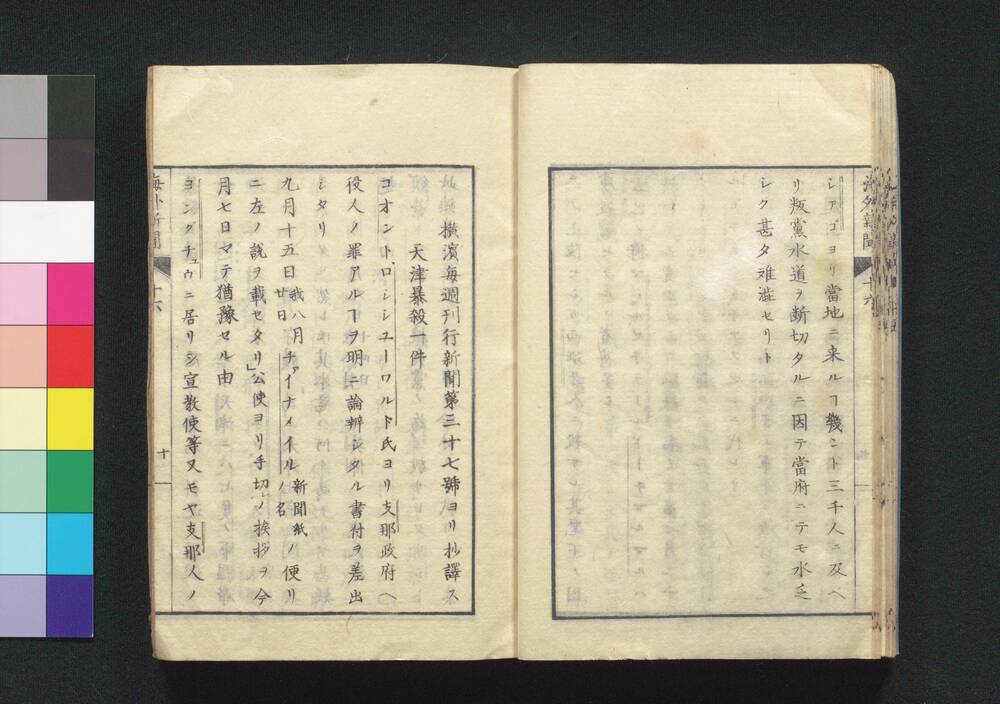 海外新聞
十六
シアゴヨリ當地ニ来ルヿ幾ント三千人ニ及ヘ
リ叛黨水道ヲ断切タルニ因テ當府ニテモ水乏
シク甚タ难澁セリト
橫濱每週刊行新聞第三十七號ヨリ抄譯ス
天津暴殺一件
コオント、ロシシユーワルト氏ヨリ支那政府ヘ
役人ノ罪アルヿヲ明ニ論辨シタル書付ヲ差出
シタリ
九月十五日我八月廿日チァイナメイルノ新聞紙ノ名ノ便リ
ニ左ノ說ヲ載セタリ」公使ヨリ手切ノ挨拶ヲ今
月七日マテ猶豫セル由
ヨングチュウニ居リシ宣教使等又モヤ支那人ノ
海外新聞
十六
十